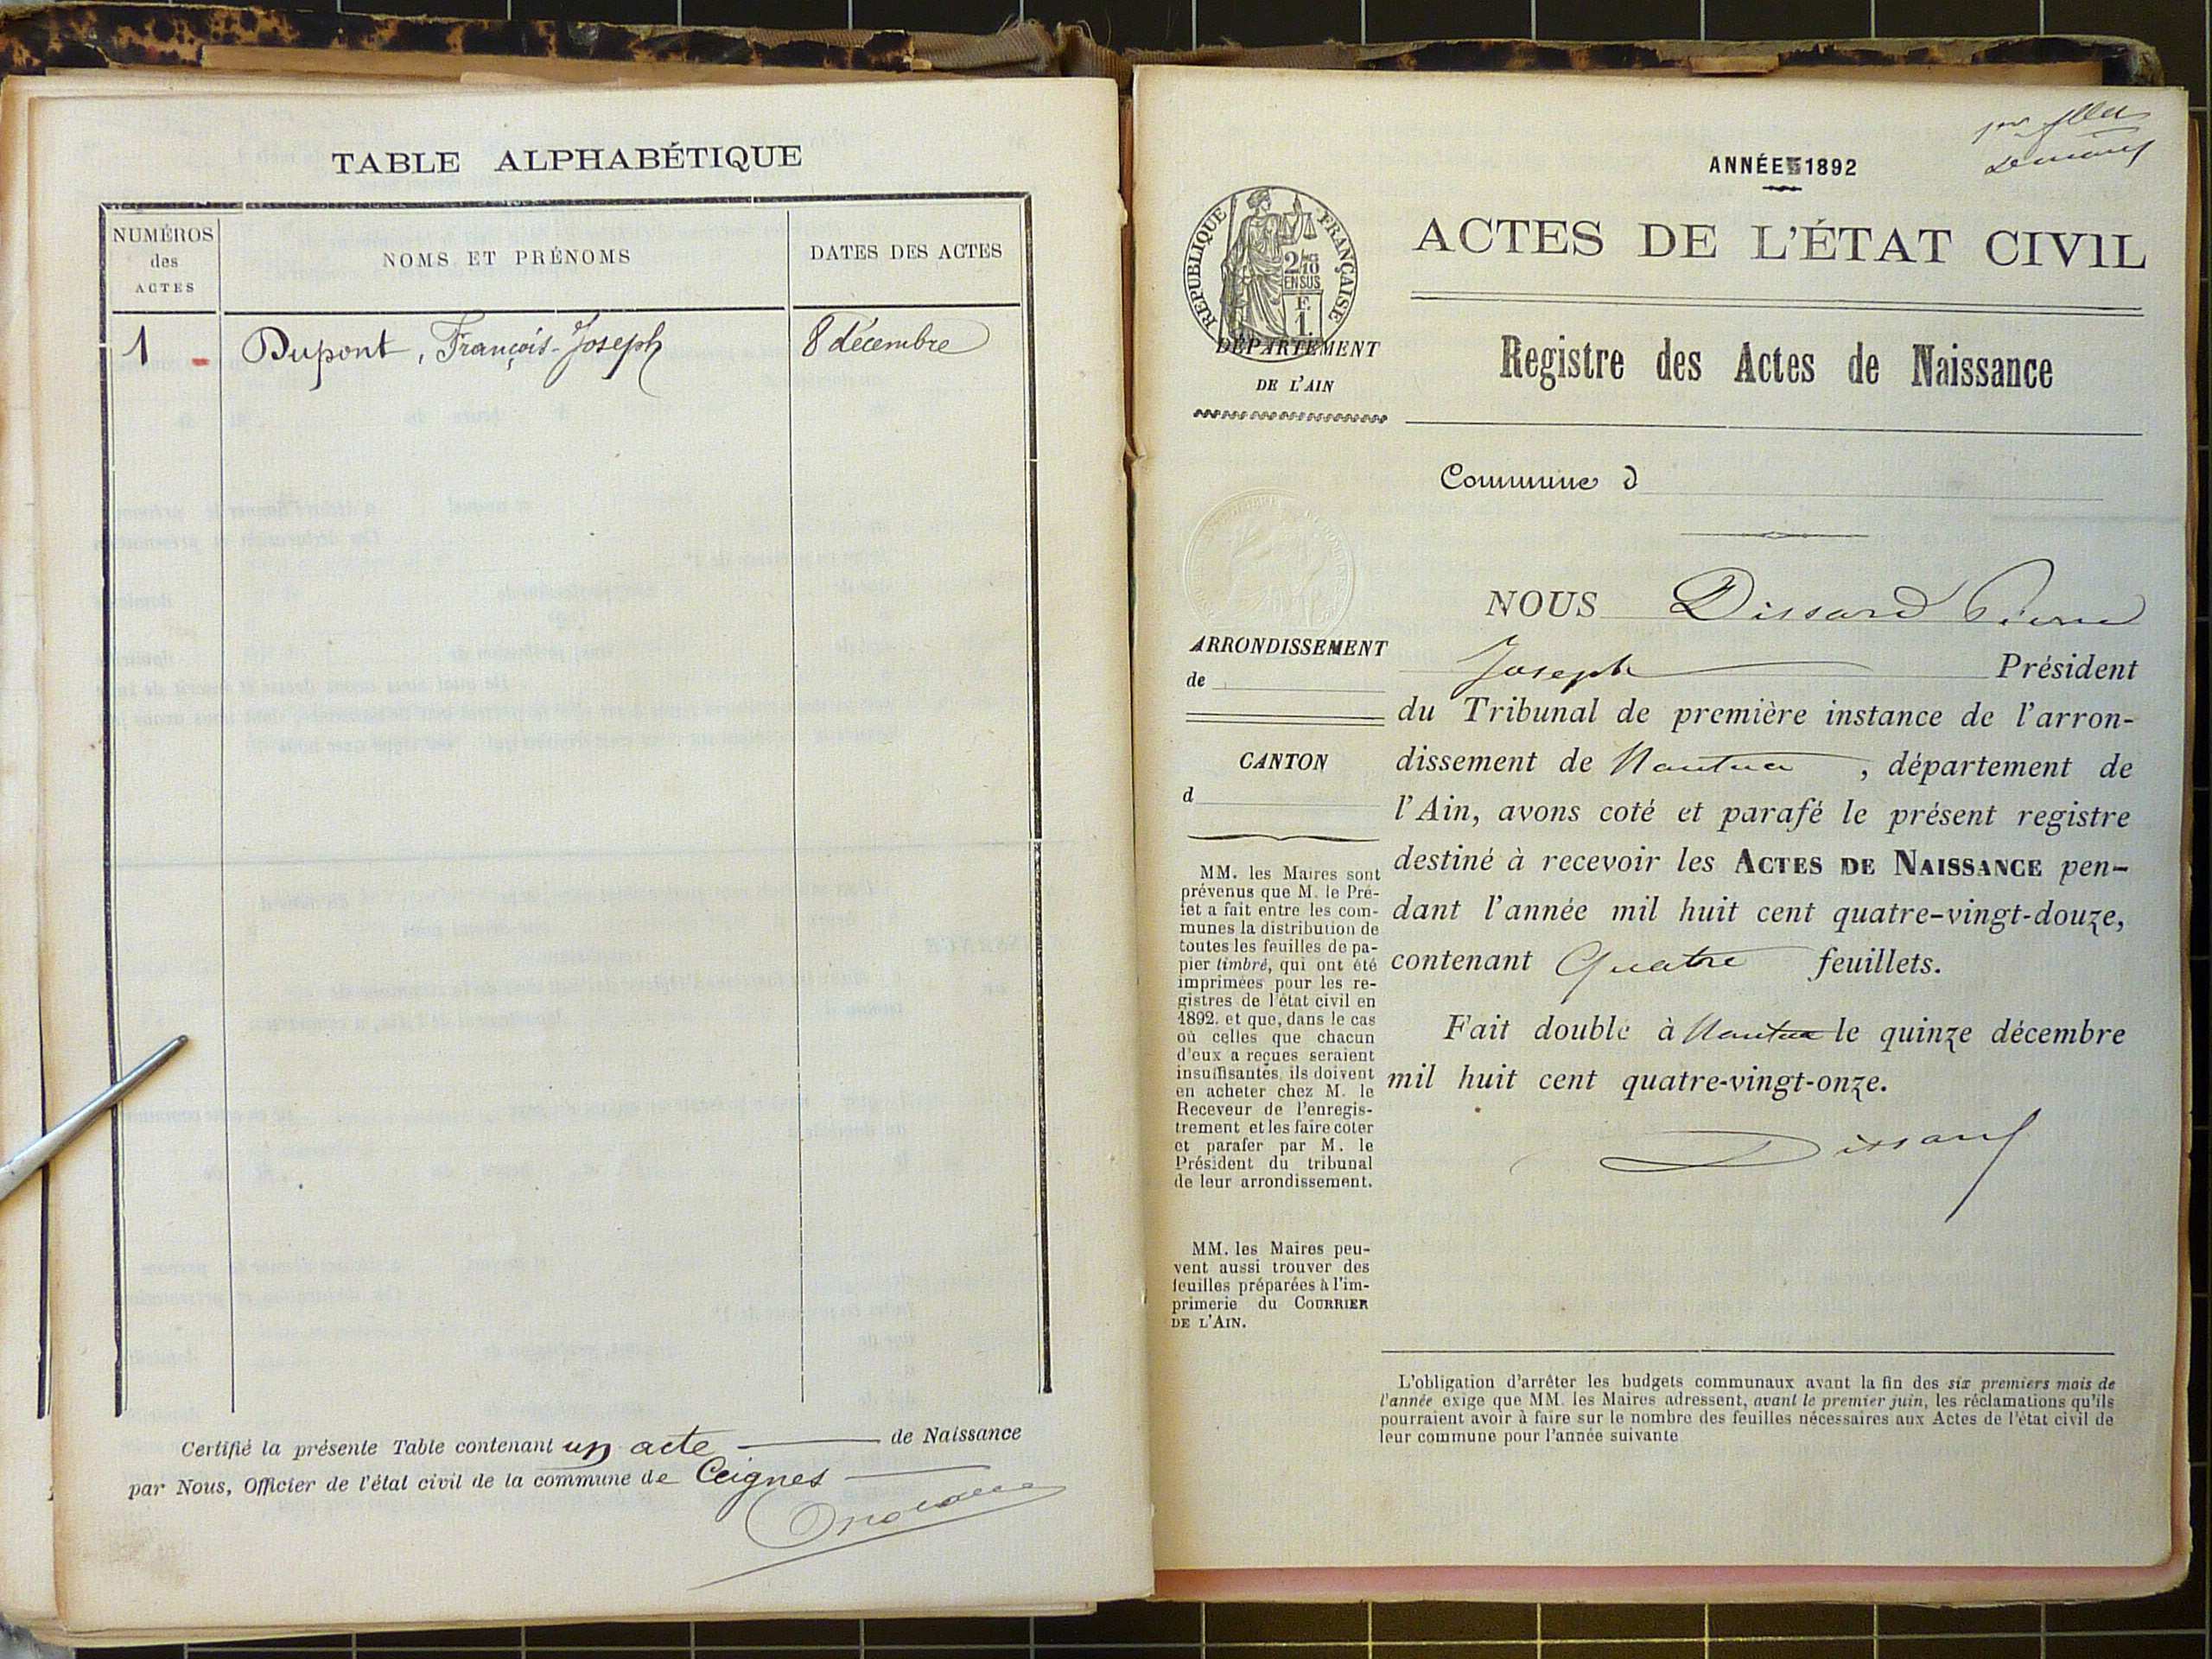 TABLE ALPHABÉTIQUE
NUMÉROS
des
ACTES
NOMS ET PRÉNOMS
DATES DES ACTES
1 - Dupont, François-Joseph 8 décembre
Certifié la présente Table contenant un acte de Naissance
par Nous, Officier de l'état civil de la commune de Ceignes
ANNÉE 1892
RÉPUBLIQUE FRANÇAISE
2/10
EN SUS
F.
1.
DÉPARTEMENT
DE L'AIN
ACTES DE L'ÉTAT CIVIL
Registre des Actes de Naissance
Commune d
ARRONDISSEMENT
de
CANTON
d
MM. les Maires sont
prévenus que M. le Pré-
fet a fait entre les com-
munes la distribution de
toutes les feuilles de pa-
pier timbré, qui ont été
imprimées pour les re-
gistres de l'état civil en
1892. et que, dans le cas
où celles que chacun
d'eux a reçues seraient
insuffisantes, ils doivent
en acheter chez M. le
Receveur de l'enregis-
trement et les faire coter
et parafer par M. le
Président du tribunal
de leur arrondissement.
MM. les Maires peu-
vent aussi trouver des
feuilles préparées à l'im-
primerie du COURRIER
DE L'AIN.
NOUS Dissard Pierre
Joseph Président
du Tribunal de première instance de l'arron-
dissement de Nantua, département de
l'Ain, avons coté et parafé le présent registre
destiné à recevoir les ACTES DE NAISSANCE pen-
dant l'année mil huit cent quatre-vingt-douze,
contenant Quatre feuillets.
Fait double à Nantua le quinze décembre
mil huit cent quatre-vingt-onze.
Dissard
L'obligation d'arrêter les budgets communaux avant la fin des six premiers mois de
l'année exige que MM. les Maires adressent, avant le premier juin, les réclamations qu'ils
pourraient avoir à faire sur le nombre des feuilles nécessaires aux Actes de l'état civil de
leur commune pour l'année suivante